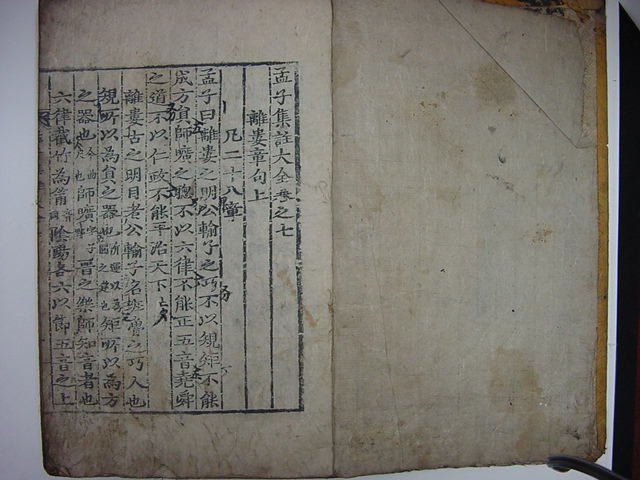 孟子集註大全卷之七
離婁章句上
凡二十八章
孟子曰離婁之明公輸子之巧不以規矩不能
成方員師曠之聰不以六律不能正五音堯舜
之道不以仁政不能平治天下
離婁古之明目者公輸子名班魯之巧人也
規所以爲員之器也矩所以爲方
之器也師曠晉之樂師知音者也
六律截竹爲筩陰陽各六以節五音之上